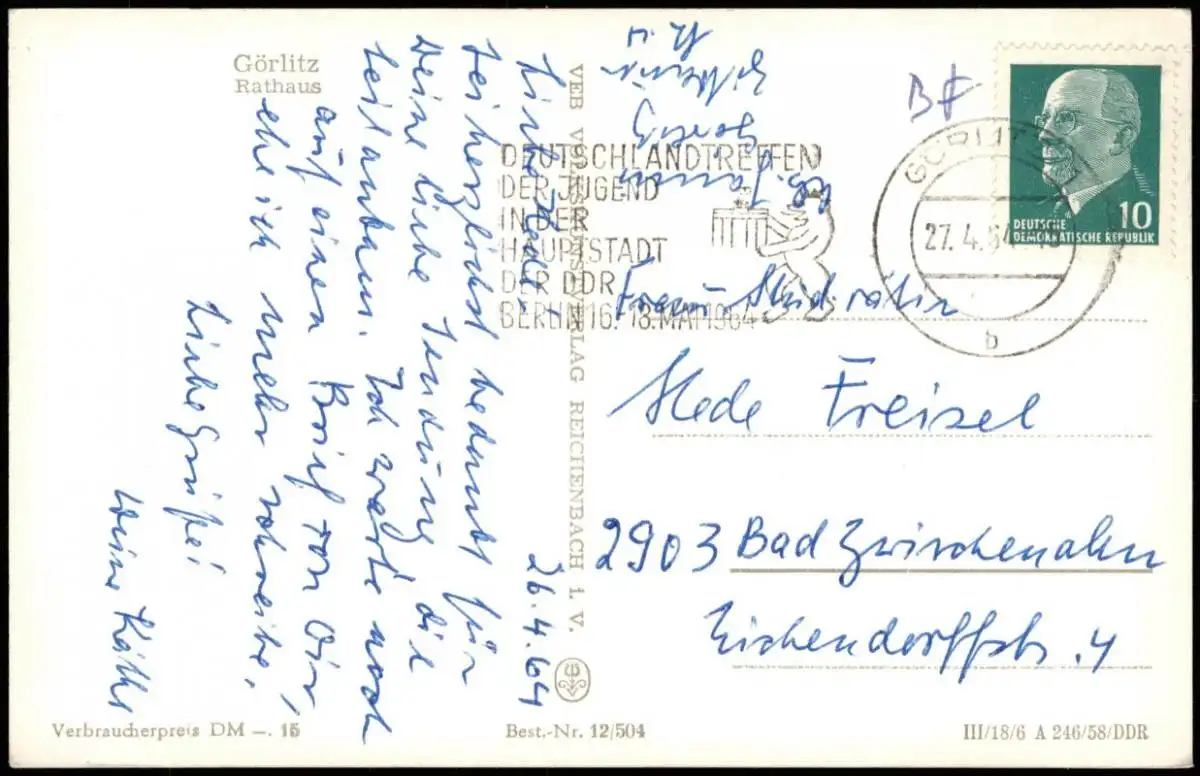 Görlitz
Rathaus
26.4.64
Liebe Hede!
Sei herzlichst bedankt für
Deine liebe Sendung die
teil ankam. Ich warte noch
auf einen Brief von Dir,
ehe ich mehr schreibe.
Liebe Grüße!
Deine Käthe
VEB VOLKSKUNSTVERLAG REICHENBACH I. V.
Abs.
Görlitz
DEUTSCHLANDTREFFEN
DER JUGEND
IN DER
HAUPTSTADT
DER DDR
BERLIN 16.-18. MAI 1964
GÖRLITZ
27.4.64
b
10
DEUTSCHE
DEMOKRATISCHE REPUBLIK
Frau
Hede Freisel
2903 Bad Zwischenahn
Eichendorffstr. 4
Verbraucherpreis DM —. 15
Best.-Nr. 12/504
III/18/6 A 246/58/DDR